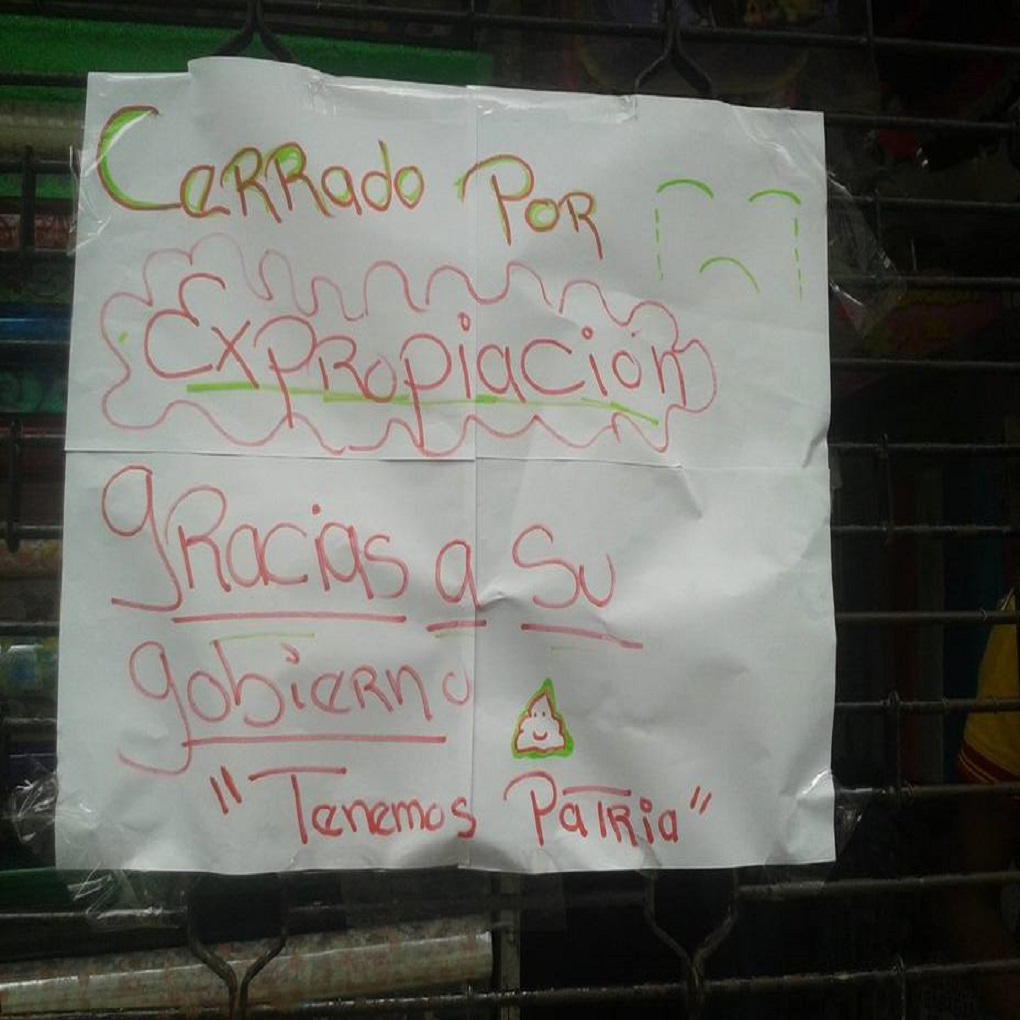 Cerrado Por
Expropiación
gracias a Su
gobierno
"Tenemos Patria"